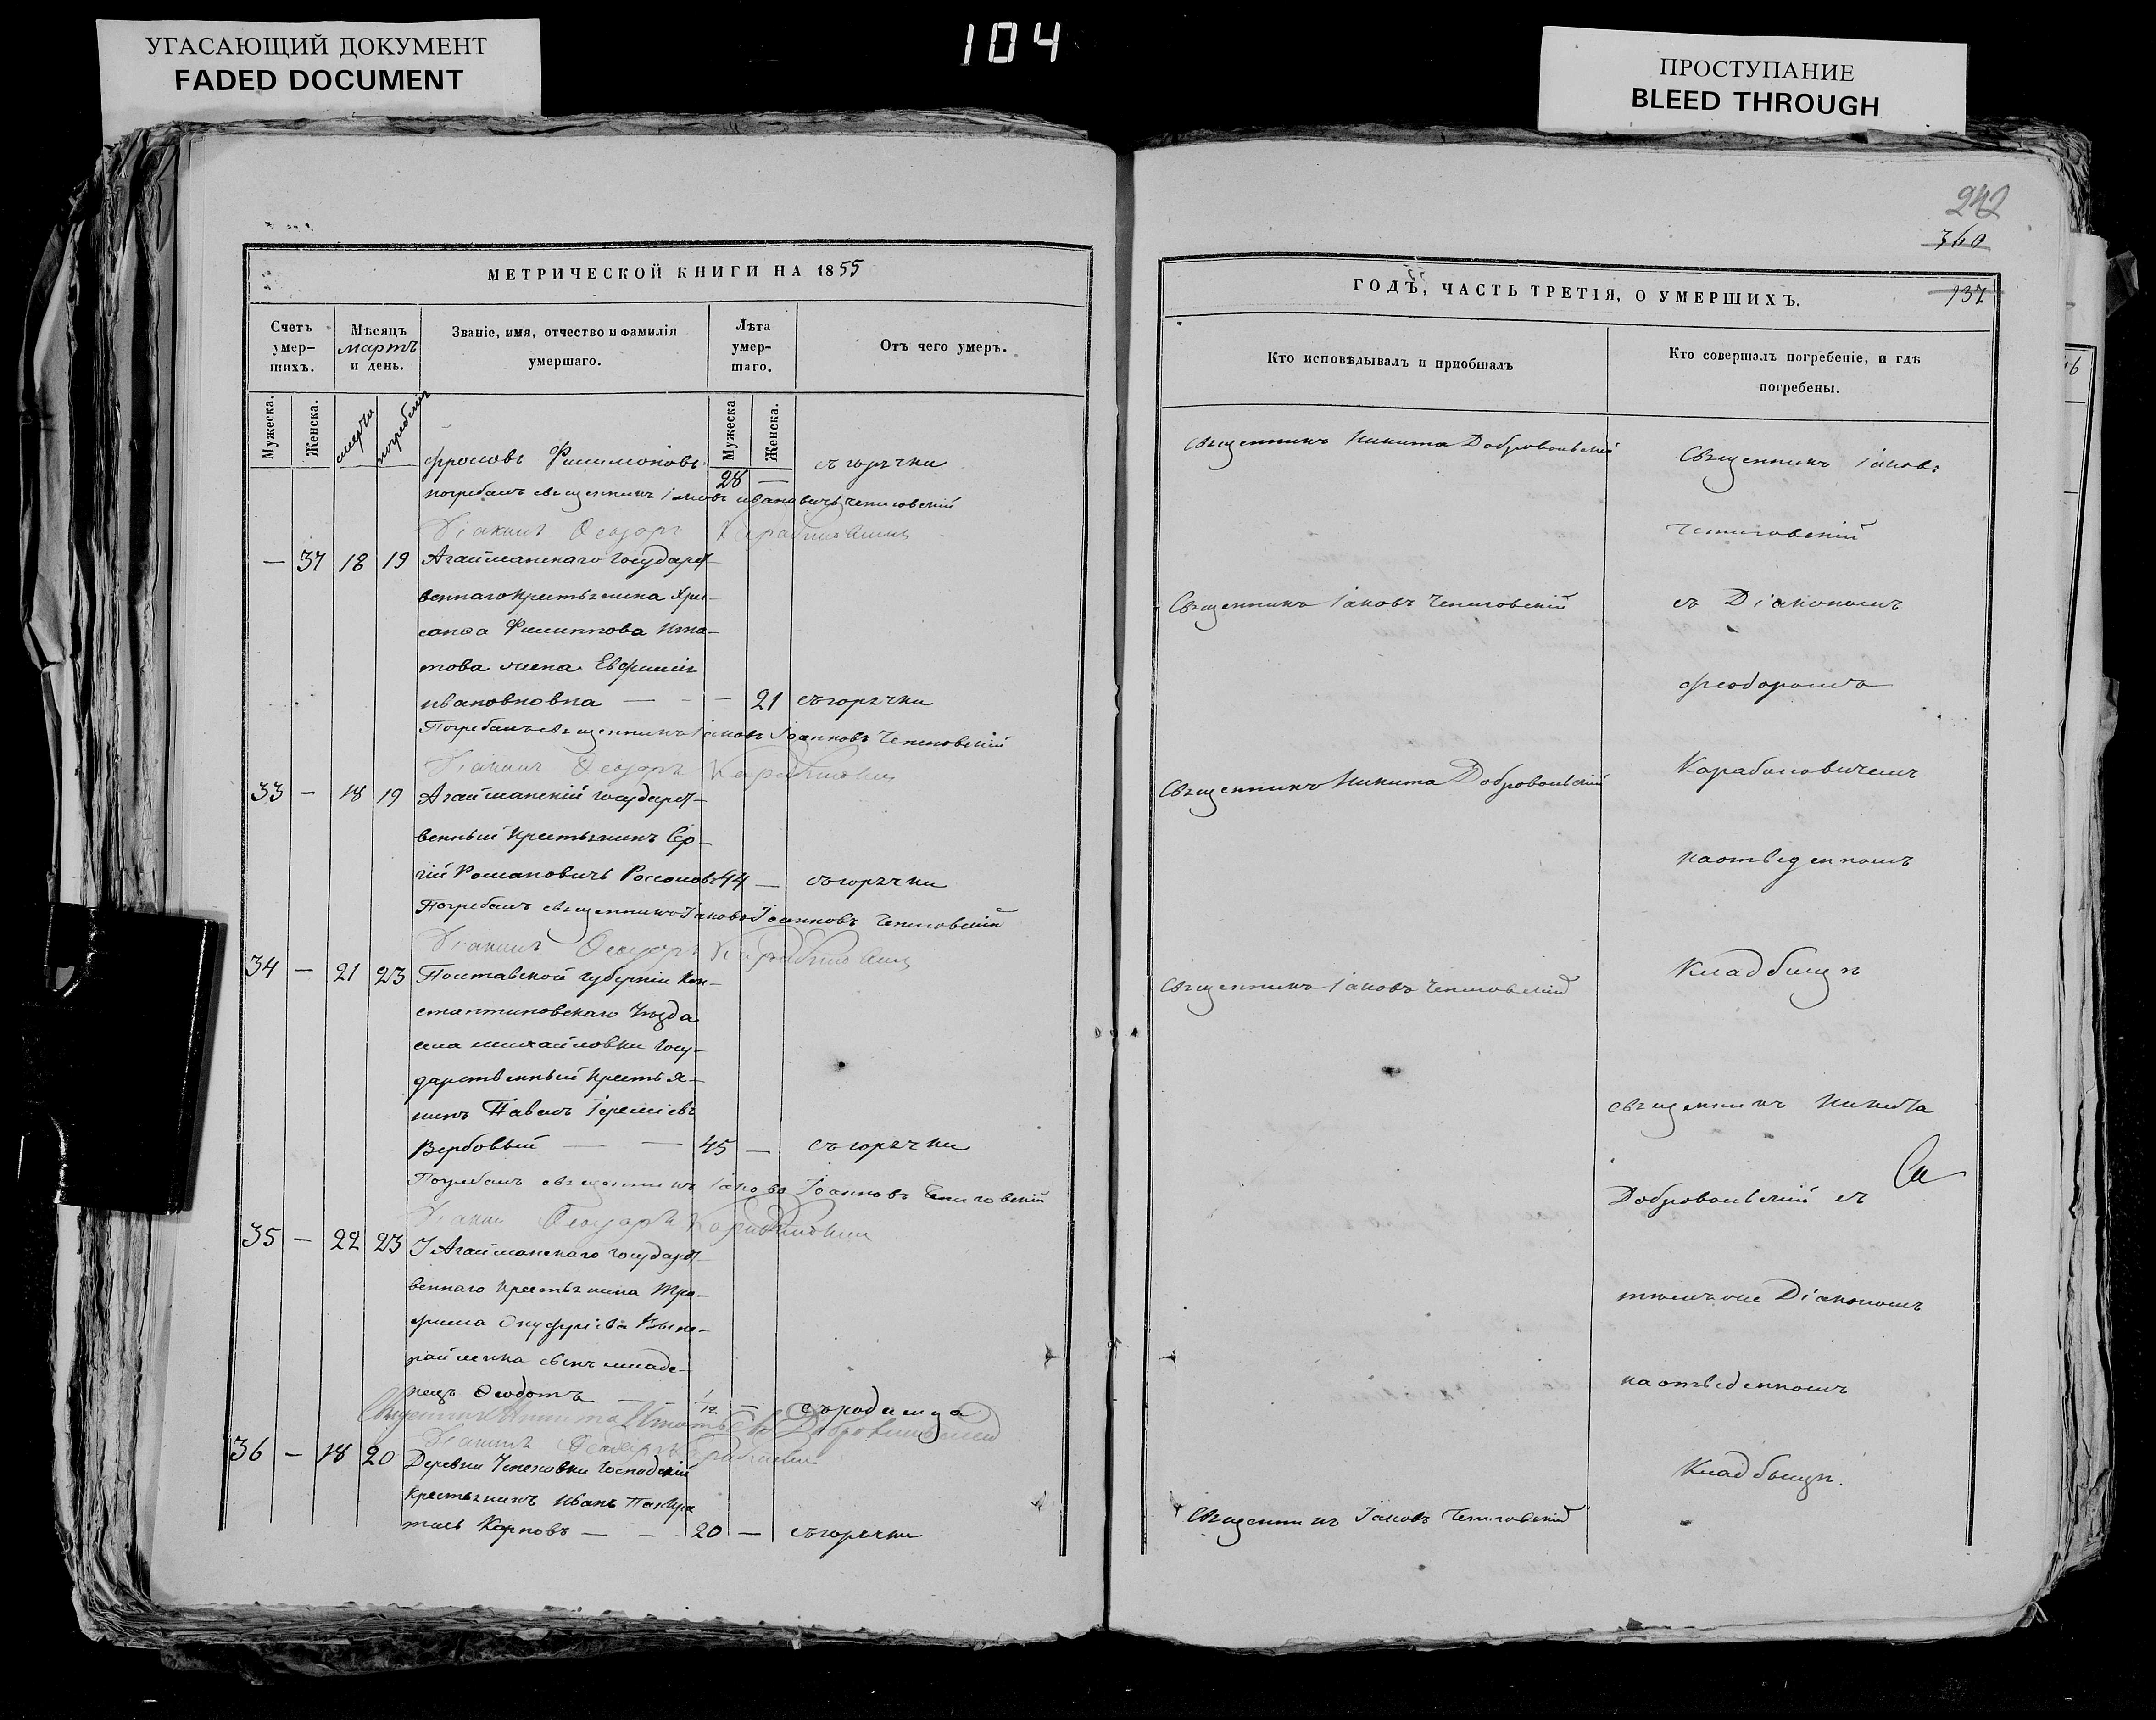 УГАСАЮЩИЙ ДОКУМЕНТ
FADED DOCUMENT
104
ПРОСТУПАНИЕ
BLEED THROUGH
МЕТРИЧЕСКОЙ КНИГИ НА 1855
Счетъ умер-шихъ.
Мѣсяцъ мартъ и день.
Званіе, имя, отчество и фамилія умершаго.
Лѣта умер-шаго.
Отъ чего умеръ.
Мужеска.
Женска.
смерти
погребенія
Мужеска
Женска.
Фроловъ Филимоновъ 28 — съ горячки
погребалъ священникъ Іаковъ Ивановичъ Чепиговскій
Діаконъ Ѳеодоръ
— 37 18 19 Агайманскаго государст-
веннаго крестьянина Хри-
санфа Филиппова Игна-
това жена Евфимія
Ивановновна — — — 21 съ горячки
Погребалъ священникъ Іаковъ Іоанновъ Чепиговскій
Діаконъ Ѳеодоръ
33 — 18 19 Агайманскій государст-
венный крестьянинъ Сер-
гій Романовичъ 44 — съ горячки
Погребалъ священникъ Іаковъ Іоанновъ Чепиговскій
Діаконъ Ѳеодоръ
34 — 21 23 Полтавской губерніи Кон-
стантиновскаго уѣзда
села Михайловки госу-
дарственный крестья-
нинъ Павелъ Іереміевъ
Вербовый — — 45 — съ горячки
Погребалъ священникъ Іаковъ Іоанновъ Чепиговскій
Діаконъ Ѳеодоръ
35 — 22 23 Агайманскаго государст-
веннаго крестьянина Тро-
фима Онуфріева
сынъ младе-
нецъ Ѳеодотъ — 1/12 — съ родимца
Священникъ Никита Добровольскій
Діаконъ Ѳеодоръ
36 — 18 20 Деревни господскій
крестьянинъ Иванъ
Карповъ — — 20 — съ горячки
242
360
137
ГОДЪ, ЧАСТЬ ТРЕТІЯ, О УМЕРШИХЪ.
Кто исповѣдывалъ и пріобщалъ
Кто совершалъ погребеніе, и гдѣ погребены.
Священникъ Никита Добровольскій
Священникъ Іаковъ Чепиговскій
Священникъ Никита Добровольскій
Священникъ Іаковъ Чепиговскій
Священникъ Іаковъ Чепиговскій
Священникъ Іаковъ
Чепиговскій
съ Діакономъ
Феодоромъ
Карабиновичемъ
на отведенномъ
Кладбищѣ
священникъ Никита
Добровольскій съ
тѣмъ же Діакономъ
на отведенномъ
Кладбищѣ.